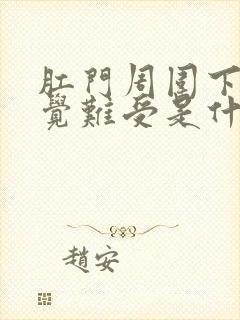 肛門周圍下
覺難受是什
趙安